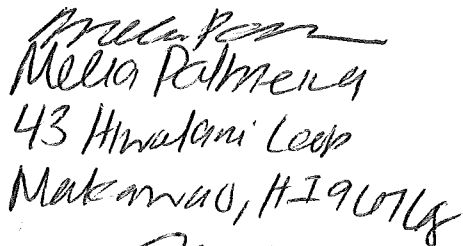 Melia Palmeira
43 Hiwalani Loop
Makawao, HI 96768